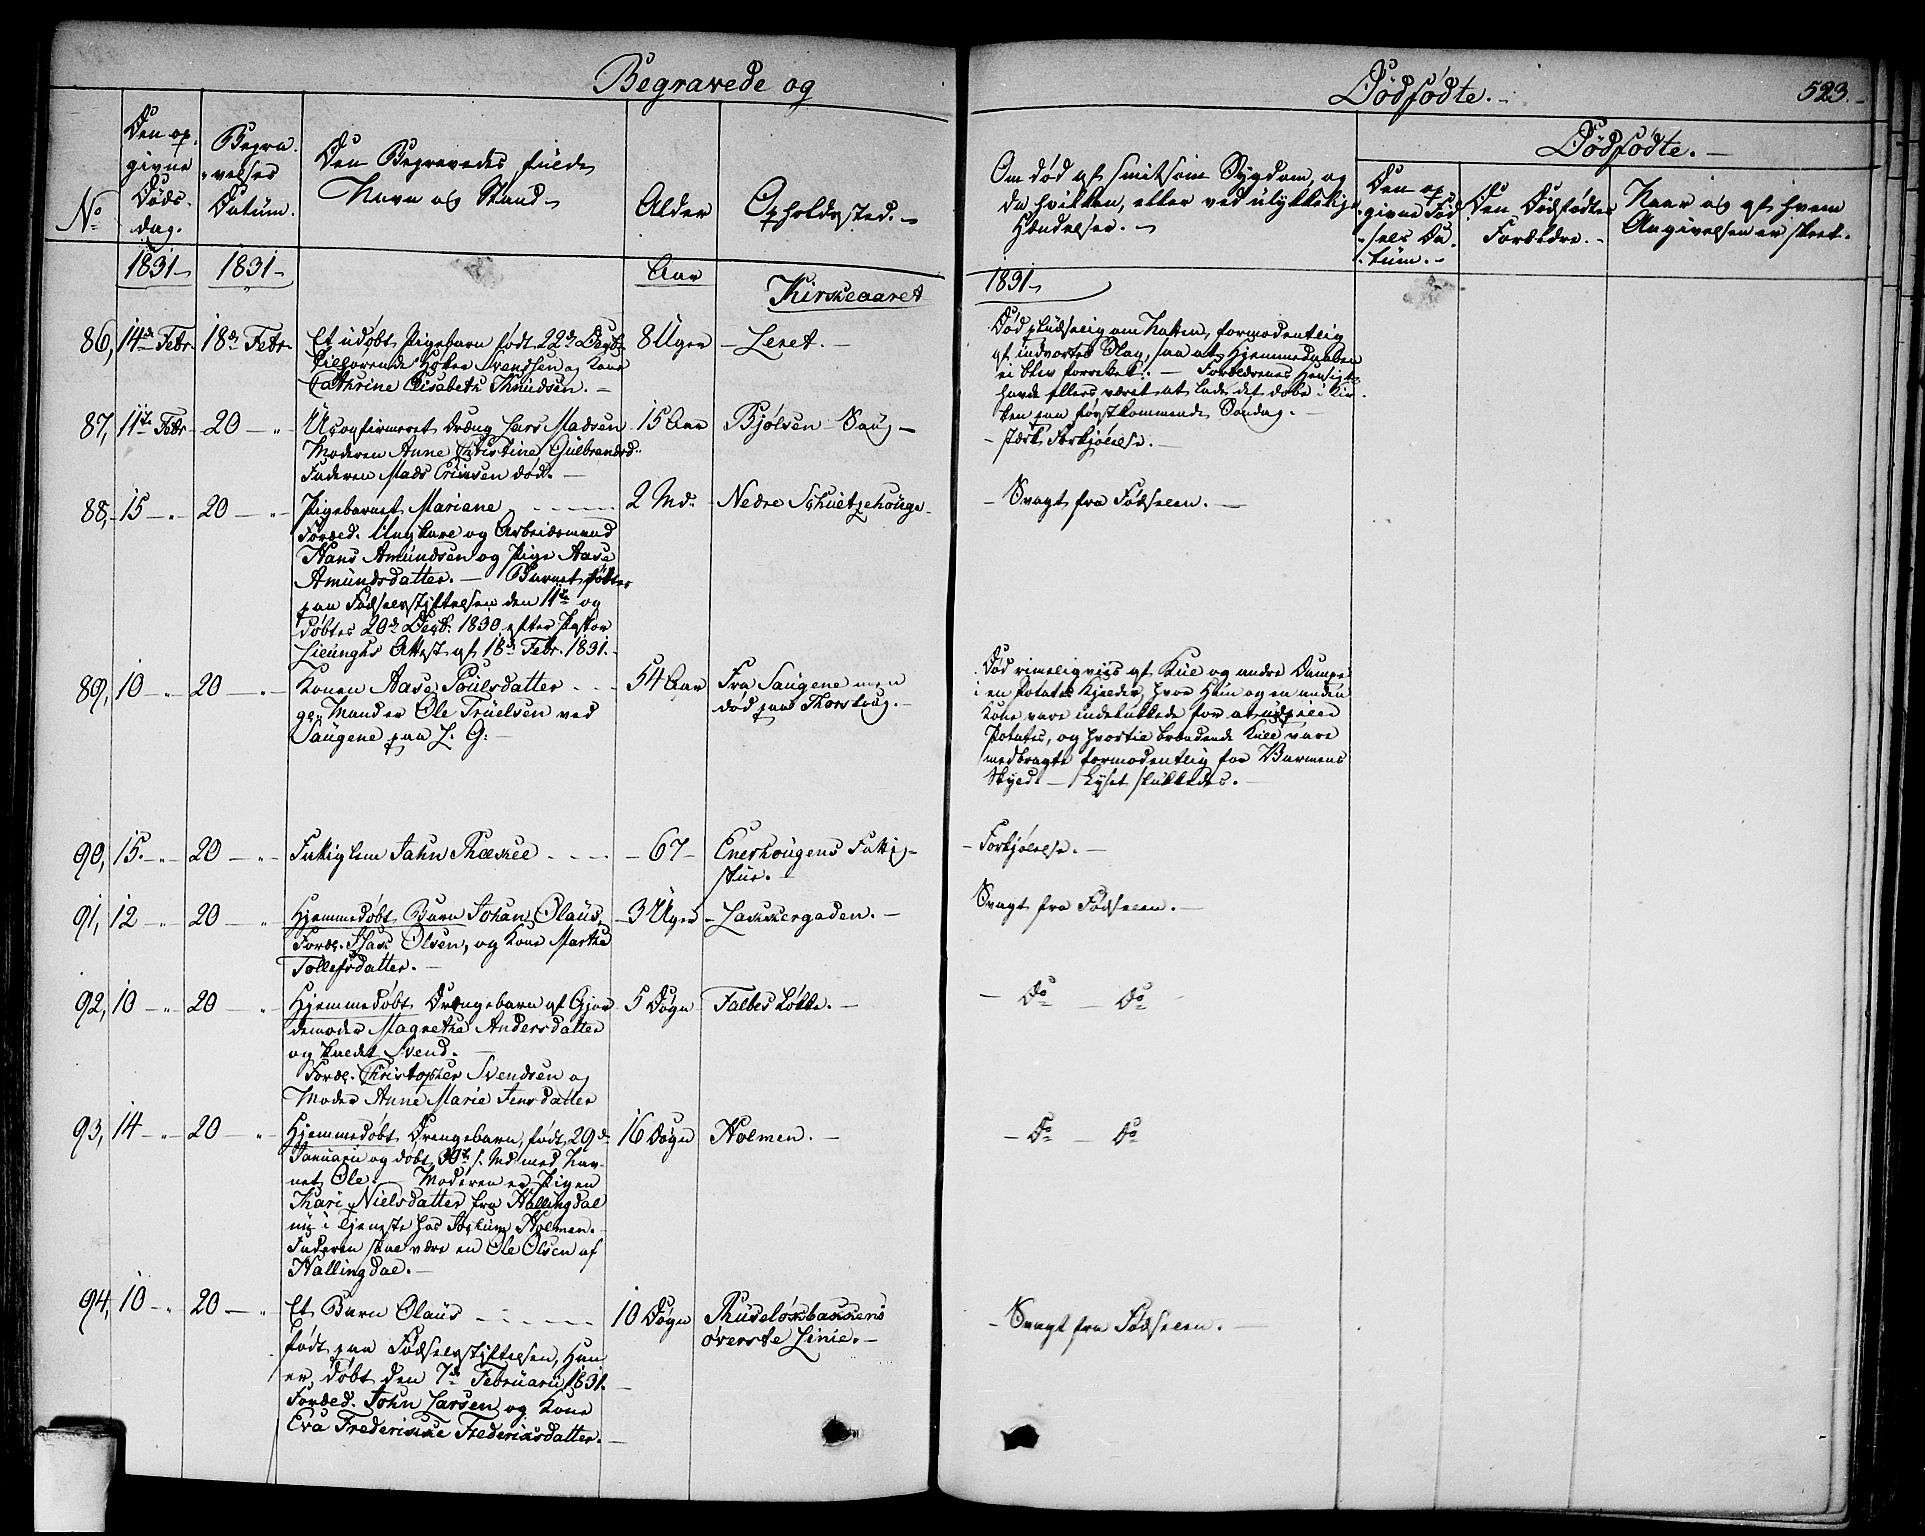 Begravede og
Dødfødte.
523.
No
Den op-
givne
Døds-
dag.
Begra-
velses
Datum.
Den Begravedes fulde
Navn og Stand
Alder
Opholdssted.
Om død af smitsom Sygdom, og
da hvilken, eller ved ulykkelige
Hændelser.
Dødfødte.
Den op-
givne Fød-
sels Da-
tum.
Den Dødfødtes
Forældre.
Naar og af hvem
Angivelsen er skeet.
1831
1831
Aar
Kirkegaaret
1831
86, 14de Febr. 18de Febr. Et udøbt Pigebarn født 22de Decbr. 8 Uger Leret.
Svendsen og Kone
Cathrine Elisabeth Knudsen.
Død pludselig om Natten, formodentlig
af indvortes Slag, saa at Hjemmedaaben
ei blev forrettet. Forældrenes Hensigt
havde ellers været at lade det døbe i Kir-
ken paa førstkommende Søndag.
87, 11te Febr 20 Uconfirmeret Dreng Lars Madsen 15 Aar Bjølsen Saug
Moderen Anne Christine Gulbrandsd.
Faderen Mads død.
stærk Forkjølelse.
88, 15 20 Pigebarnet Mariane 2 Md. Nedre Schultzehouge
Foræld. Ungkarl og Arbeidsmand
Hans Amundsen og Pige Aase
Amundsdatter. Barnet fødtes
paa Fødselsstiftelsen den 11te og
døbtes 20de Decb. 1830 efter Pastor
Attest af 18de Febr. 1831.
Svagt fra Fødselen.
89, 10 20 Konen Aase Poulsdatter 54 Aar Fra Saugene men
død paa Thorshoug.
Mand er Ole Truelsen ved
Saugene paa L. G.
Død rimeligviis af Kul og andre Dampe
i en Potates Kjelder, hvor Hun og en anden
Kone vare indelukkede for at udpille
Potates, og hvortil brændende Kull vare
medbragte formodentlig for Varmens
Skyld. Lyset slukkedes.
90, 15. 20 Fattiglem Jahn 67 Enerhougens Fattig-
stue.
Forkjølelse.
91, 12 20 Hjemmedøbt Barn Johan Olaus, 3 Uger Lakkergaden.
Foræl. Isak Olsen, og Kone Marthe
Tollefsdatter.
Svagt fra Fødselen.
92, 10 20 Hjemmedøbt Drengebarn af Gjor- 5 Døgn Falbes Løkke.
demoder Magrethe Andersdatter
og kaldet Svend.
Foræl. Christopher Svendsen og
Moder Anne Marie Jensdatter
Do Do
93, 14 20 Hjemmedøbt Drengebarn, født 29de 16 Døgn Holmen.
Januarii og døbt 30te s. Md med Nav-
net Ole. Moderen er Pigen
Kari Nielsdatter fra Hallingdal
nu i tjeneste hos Holmen.
Faderen skal være en Ole Olsen af
Hallingdal.
Do Do
94, 10 20 Et Barn Olaus 10 Døgn Ruseløkbakkens
øverste Linie.
født paa Fødselsstiftelsen, Han
er døbt den 7de Februarii 1831.
Foræld. John Larsen og Kone
Eva Frederikke Frederiksdatter.
Svagt fra Fødselen.